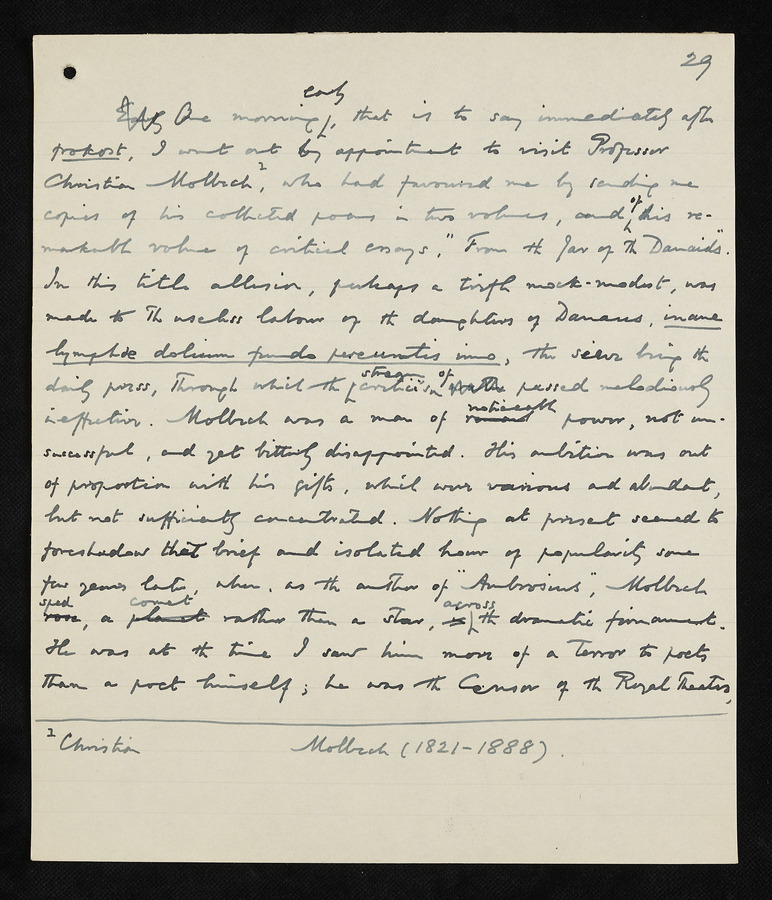 29
early
One morning, that is to say immediately after
frokost, I went out by appointment to visit Professor
Christian Molbech,² who had favoured me by sending me
of
copies of his collected poems in two volumes, and his re-
markable volume of critical essays, "From the Jar of the Danaids".
In this title allusion, perhaps a trifle mock-modest, was
made to the useless labour of the daughters of Danaus, inane
lymphae dolium fundo pereuntis imo, the sieve being the
stream of
daily press, through which the criticism passed melodiously
ineffective. Molbech was a man of
noticeable
power, not un-
successful, and yet bitterly disappointed. His ambition was out
of proportion with his gifts, which were various and abundant,
but not sufficiently concentrated. Nothing at present seemed to
foreshadow that brief and isolated hour of popularity some
few years later, when, as the author of "Ambrosius", Molbech
sped comet across
rose, a planet rather than a star, the dramatic firmament.
He was at the time I saw him more of a terror to poets
than a poet himself; he was the Censor of the Royal Theatre,
² Christian Molbech (1821-1888).